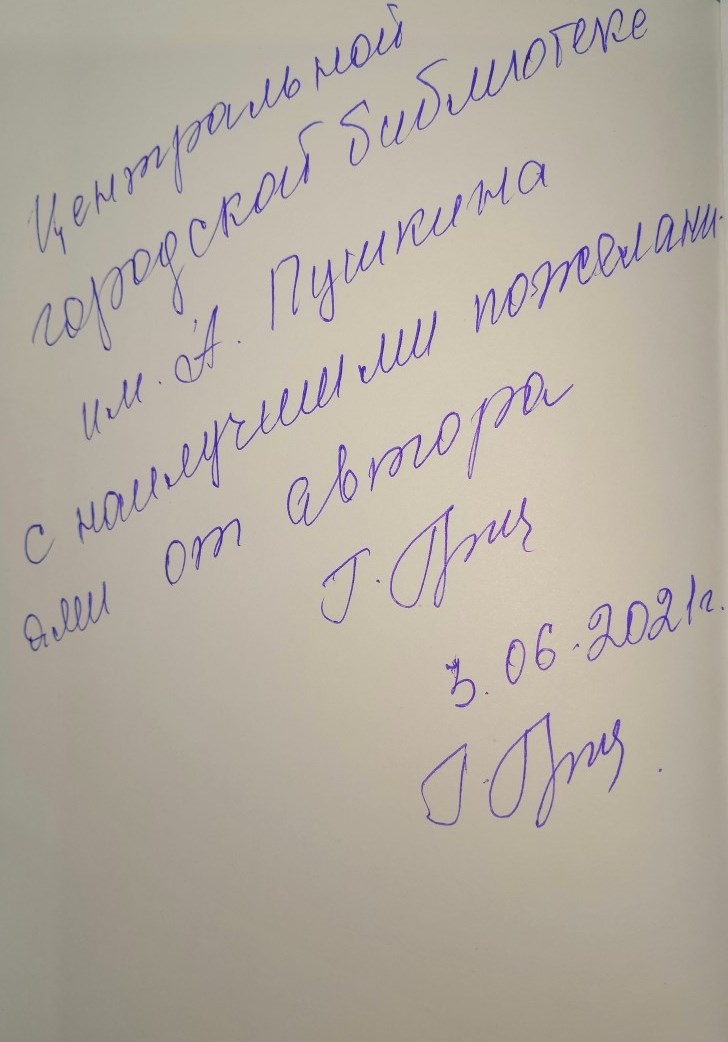 Центральной
городской библиотеке
им. А. Пушкина
с наилучшими пожелани-
ями от автора
Г.
3.06.2021г.
Г.